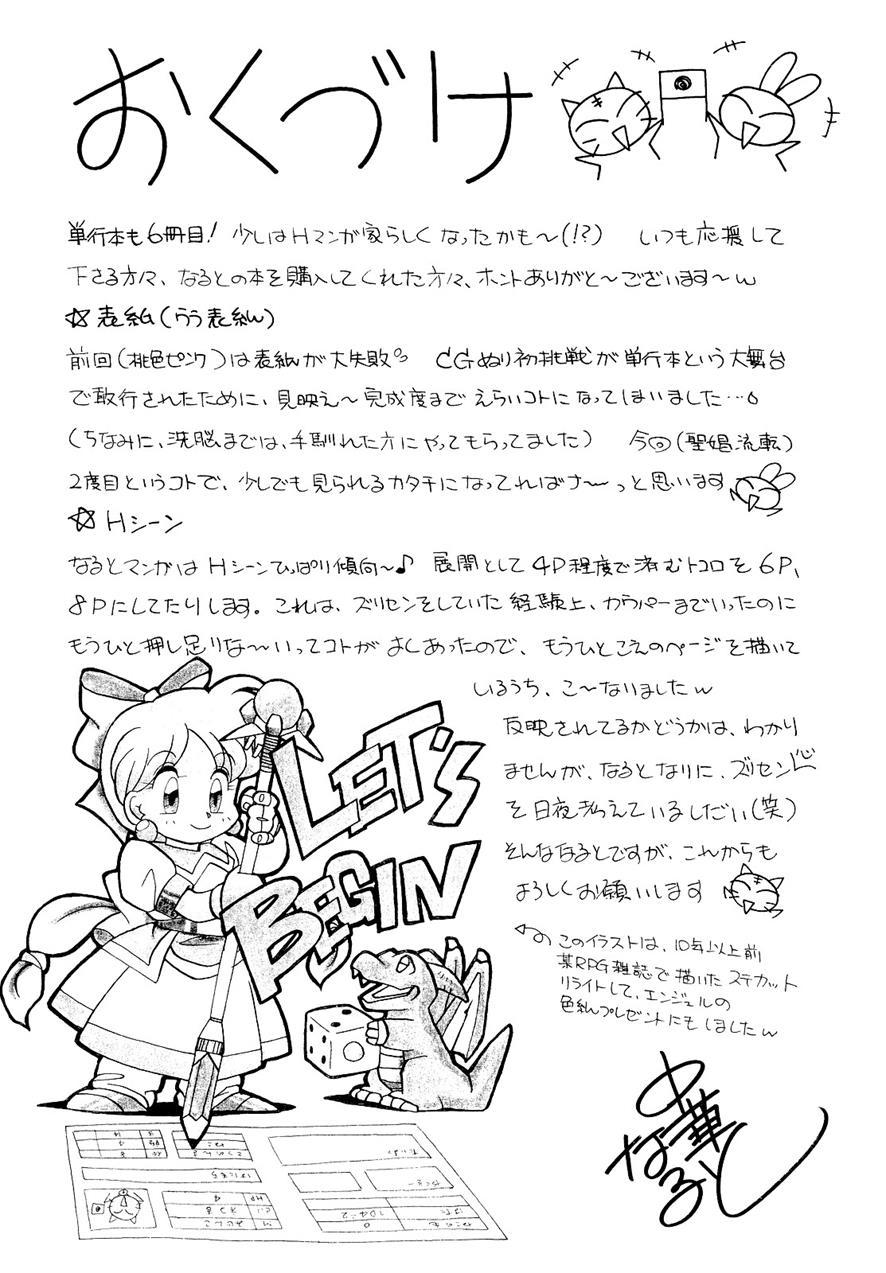 おくづけ
単行本も6冊目! 少しはHマンガ家らしくなったかも〜(!?) いつも応援して
下さる方々、なるとの本を購入してくれた方々、ホントありがと〜ございます〜w
☆表紙(うら表紙)
前回(桃色ピンク)は表紙が大失敗。 CGぬり初挑戦が単行本という大舞台
で敢行されたために、見映え〜完成度までえらいコトになってしまいました…。
(ちなみに、洗脳までは、手馴れた方にやってもらってました) 今回(聖娼流転)
2度目というコトで、少しでも見られるカタチになってればナ〜っと思います
☆Hシーン
なるとマンガはHシーンひっぱり傾向〜♪ 展開として4P程度で済むトコロを6P、
8Pにしてたりします。これは、ズリセンをしていた経験上、カウパーまでいったのに
もうひと押し足りな〜いってコトがよくあったので、もうひとこえのページを描いて
いるうち、こ〜なりましたw
反映されてるかどうかは、わかり
ませんが、なるとなりに、ズリセン心
を日夜考えているしだい(笑)
そんななるとですが、これからも
よろしくお願いします
LET'S
BEGIN
このイラストは、10年以上前
某RPG雑誌で描いたステカット
リライトして、エンジェルの
色紙プレゼントにもしましたw
中華
なると
HP
0